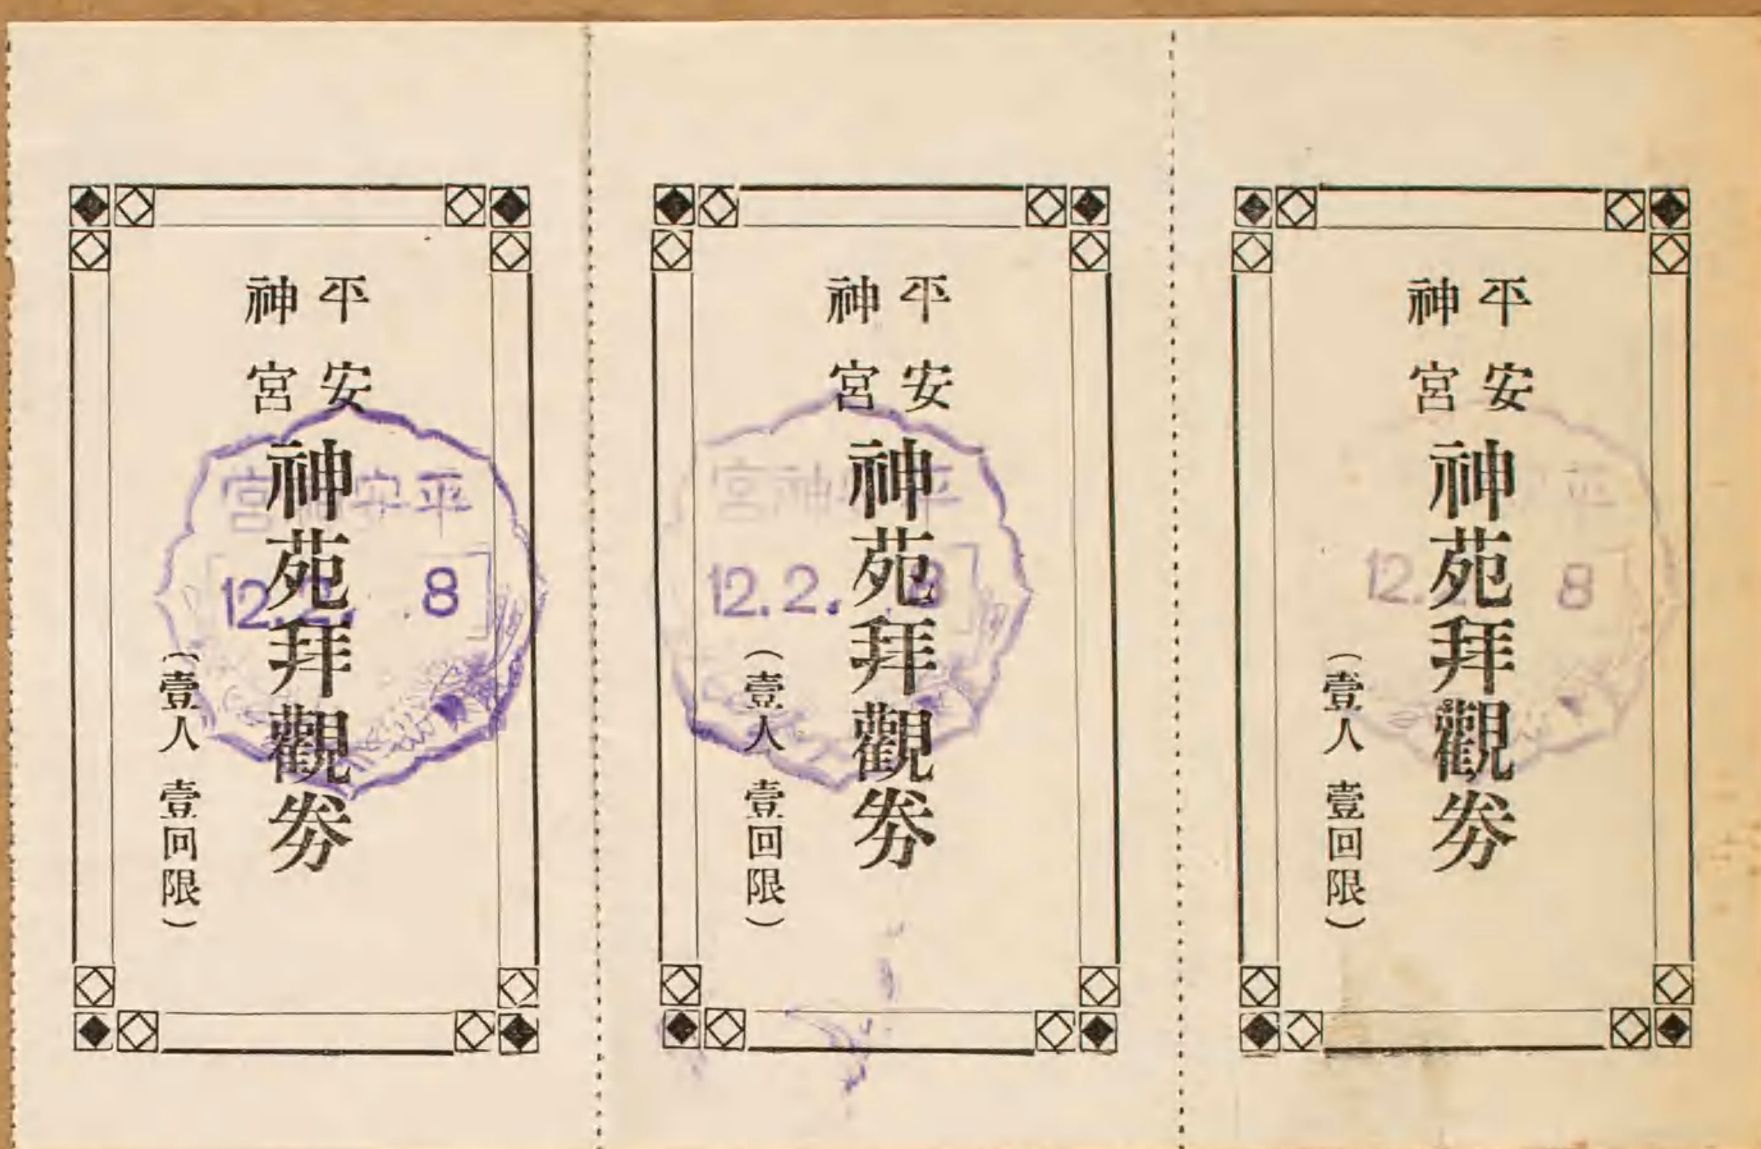 平安
神宮
神苑拜觀券
(壹人 壹回限)
平安神宮
12.2.8
平安
神宮
神苑拜觀券
(壹人 壹回限)
平安神宮
12.2.8
平安
神宮
神苑拜觀券
(壹人 壹回限)
平安
12.2.8